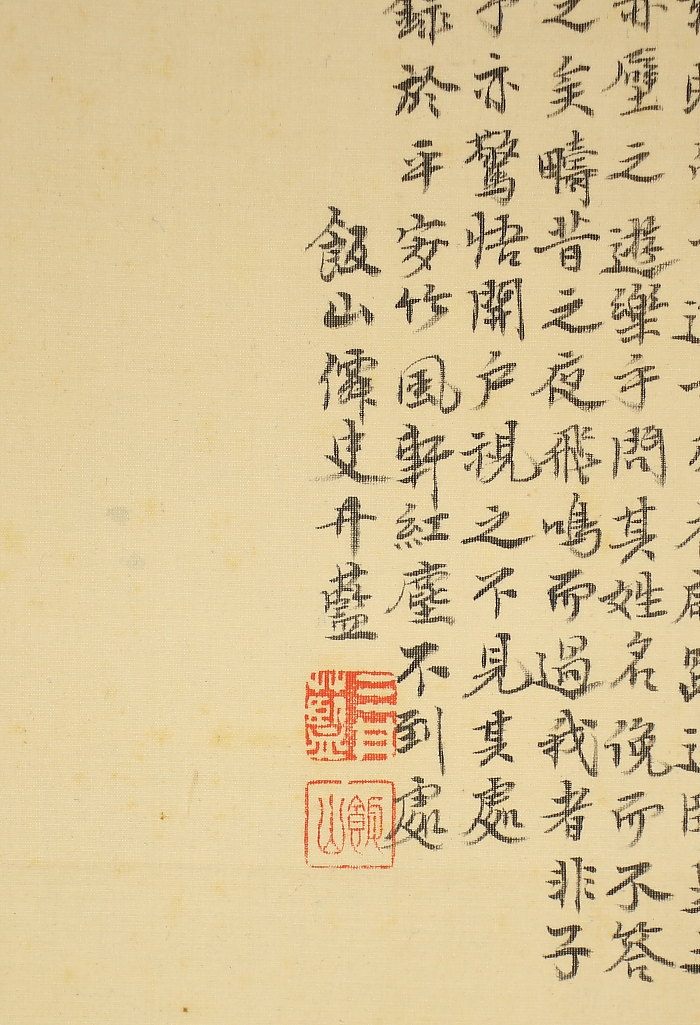 赤壁之遊樂乎問其姓名俛而不答
之矣疇昔之夜飛鳴而過我者非子
予亦驚悟開戶視之不見其處
錄於平安竹風軒紅塵不到處
飯山僊史丹藍
飯山